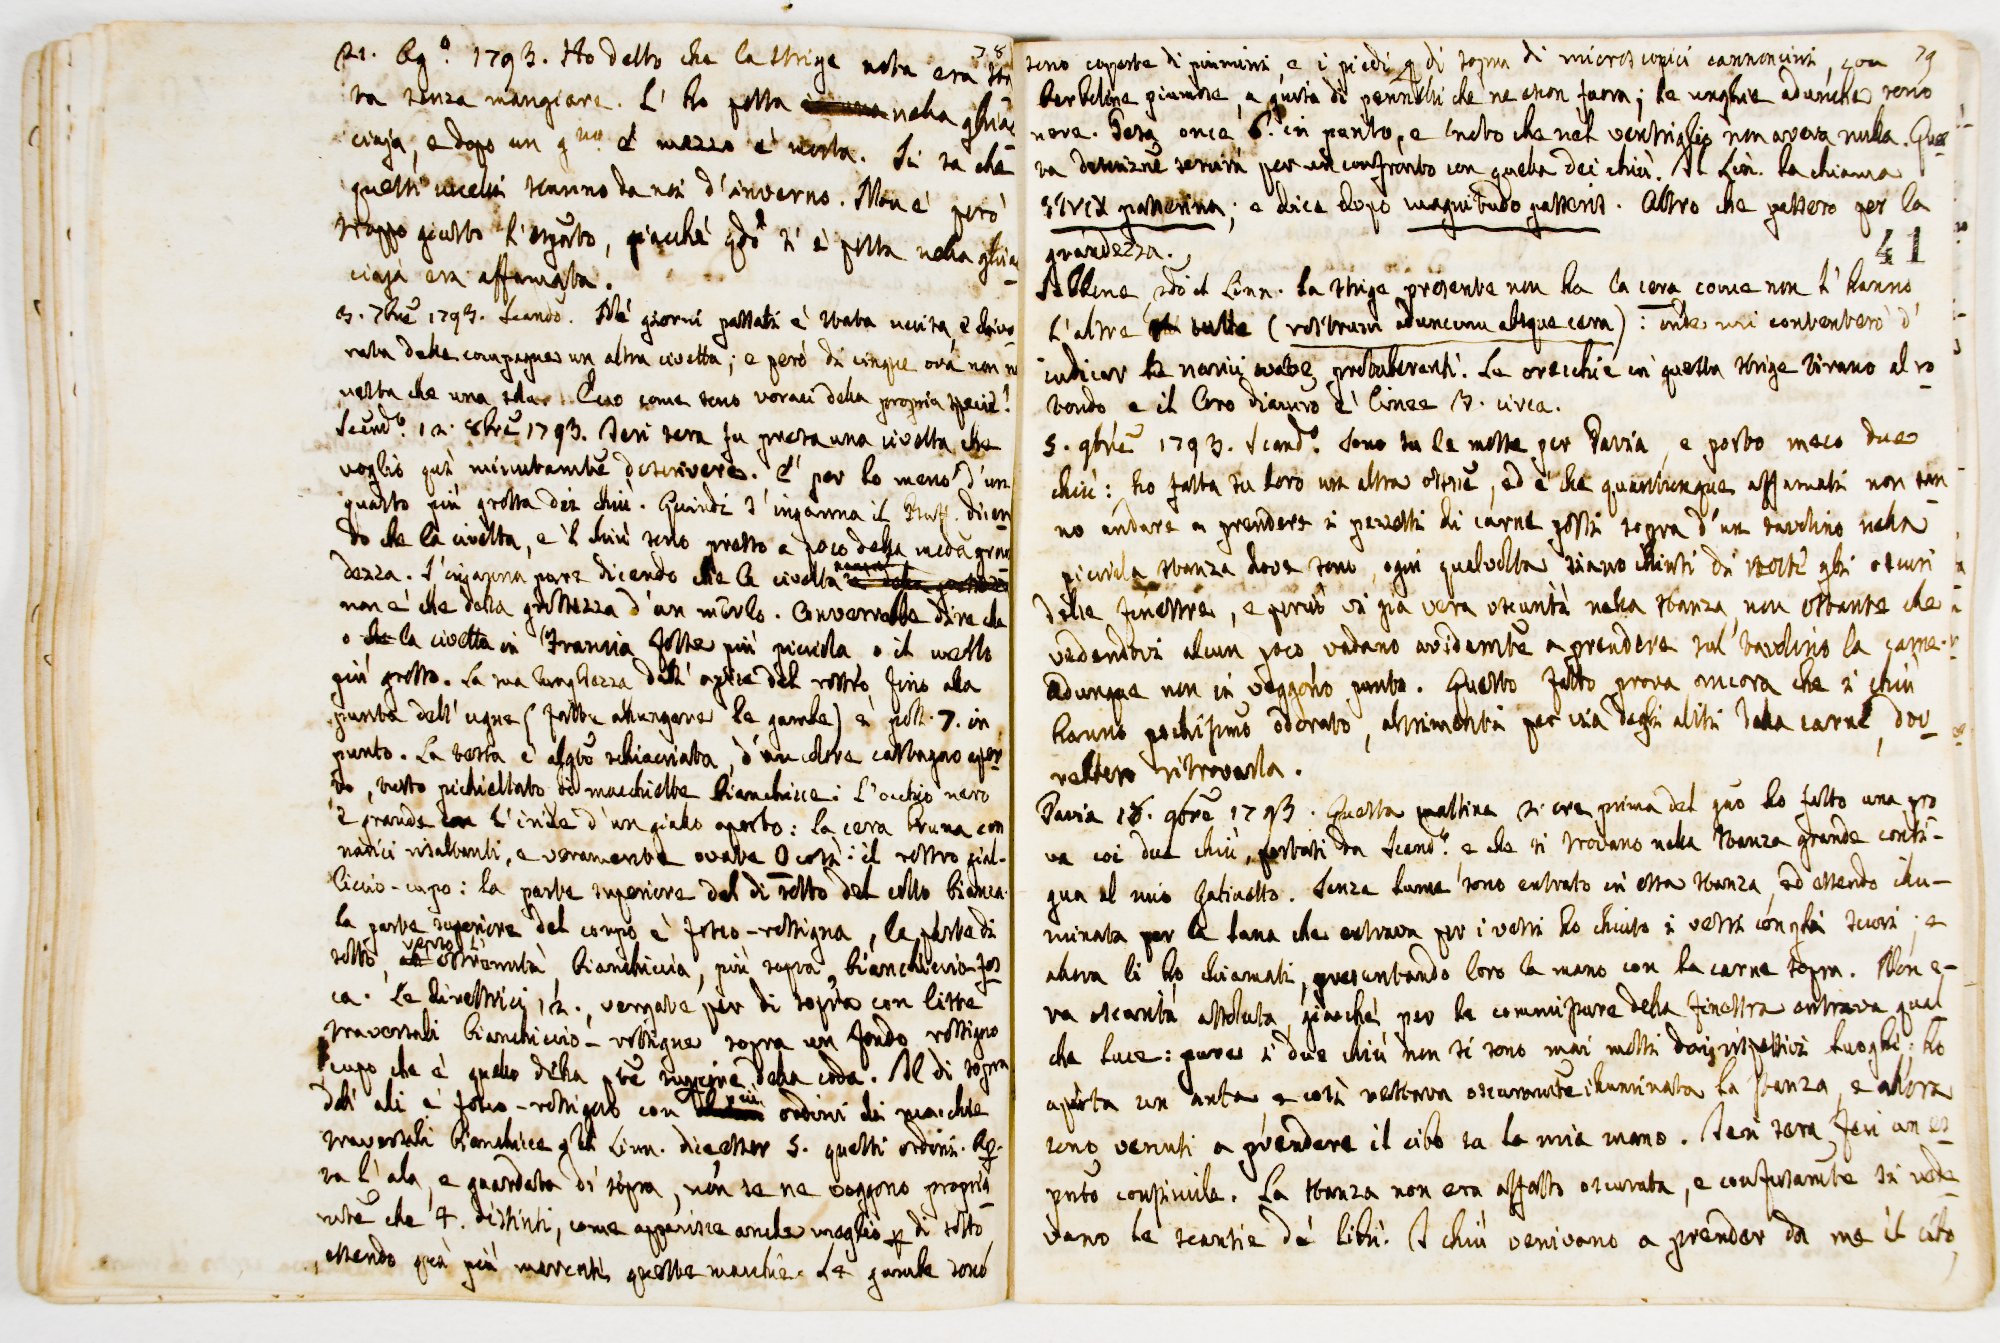 78
21. Ag.º 1793. Ho detto che la strige nota era sta
ta senza mangiare. L' ho posta nella ghiac
ciaja, e dopo un g.no e mezzo è morta. Si sa che
questi uccelli stanno da noi d'inverno. Non è però
troppo giusto l'esperto, giacchè qdo s' è posta nella ghiac
ciaja era affamata.
3. 7bre 1793. Scando. Ne' giorni passati è stata uccisa, e divo
rata dalle compagne un altra civetta; e però di cinque ora non re
sta che una sola. Ecco come sono voraci della propria specie!
Scand.º 12. 8bre 1793. Ieri sera fu presa una civetta, che
voglio quì minutamte descrivere. E' per lo meno d'un
quarto più grossa dei chiù. Quindi s'inganna il Buff. dicen
do che la civetta, e 'l chiù sono presso a poco della meda gran
dezza. S'inganna pure dicendo che la civetta
non è che della grossezza d'un merlo. Converrebbe dire che
o che la civetta in Francia fosse più picciola o il merlo
più grosso. La sua lunghezza dall' apice del rostro fino alla
punta dell' ugne (fatte allungare le gambe) è poll. 7. in
punto. La testa è alqto schiacciata, d'un colore castagno aper
to, tutto pichiettato di macchiette bianchicce: l'occhio nero
e grande con l'iride d'un giallo aperto: la cera bruna con
narici risaltanti, e veramente ovate 0 così: il rostro gial-
liccio-cupo: la parte superiore del di sotto del collo bianca.
la parte superiore del corpo è fosco-rossigna, la parte di
sotto, verso l' estremità bianchiccia, più sopra, bianchiccio-fos
ca. Le direttrici 12., vergate per di sopra con liste
traversali bianchiccio-rossigne sopra un fondo rossigno
cupo che è quello della pte superiore della coda. Al di sopra
dell' ali è fosco-rossigno con più ordini di macchie
traversali bianchicce q'li Linn. dice esser 5. questi ordini. Ap.
ta l' ala, e guardata di sopra, non se ne veggono propria
mte che 4. distinti, come apparisce anche meglio p di sotto
essendo quì più marcati queste macchie. Le gambe sono
79
sono coperte di piumini, e i piedi p di sopra di microscopici cannoncini, con
barboline piumose, a guisa di pennelli che ne escon fuora; le unghie adunche sono
nere. Pesa once 6. in punto, e noto che nel ventriglio non aveva nulla. Ques
ta descrizne servirà per un confronto con quella dei chiù. Il Lin. la chiama
strix passerina; e dice dopo magnitudo passeris. Altro che passero per la
grandezza.
41
Sebbene sdo il Linn. la strige presente non ha la cera come non l' hanno
l'altre tutte (rostrum aduncum absque cera): onde mi contenterò d'
indicar le narici ovate, protuberanti. Le orecchie in questa strige tirano al ro
tondo e il loro diamro è linee 3. circa.
5. 9bre 1793. Scand.º Sono su le mosse per Pavia, e porto meco due
chiù: ho fatta su loro un altra ossne, ed è che quantunque affamati non san
no andare a prendere i pezzetti di carne posti sopra d'un tavolino nella
picciola stanza dove sono, ogni qualvolta siano chiusi di notte gli oscuri
delle finestre, e perciò vi sia vera oscurità nella stanza, non ostante che
vedendovi alcun poco, vadano avidamte a prendere sul tavolino la carne.
Adunque non ci veggono punto. Questo fatto prova ancora che i chiù
hanno pochissimo odorato, altrimenti per via degli aliti della carne, dov
rebbero ritrovarla.
Pavia 18. 9bre 1793. Questa mattina 2. ore prima del gno ho fatto una pro
va coi due chiù, portati da Scand.º e che si trovano nella stanza grande conti-
gua al mio gabinetto. Senza lume sono entrato in essa stanza, ed essendo illu-
minata per la luna che entrava per i vetri ho chiuto i vetri con gli scuri; e
allora li ho chiamati, presentando loro la mano con la carne sopra. Non e-
ra oscurità assoluta, giacchè per le commissure della finestra entrava qual
che luce: pure i due chiù non si sono mai mossi dai rispettivi luoghi: ho
aperta un anta, e così restava oscuramte illuminata la stanza, e allora
sono venuti a prendere il cibo su la mia mano. Ieri sera feci un es
pmto consimile. La stanza non era affatto oscurata, e confusamte si vede
vano le scanzie de' libri. I chiù venivano a prender da me il cibo,